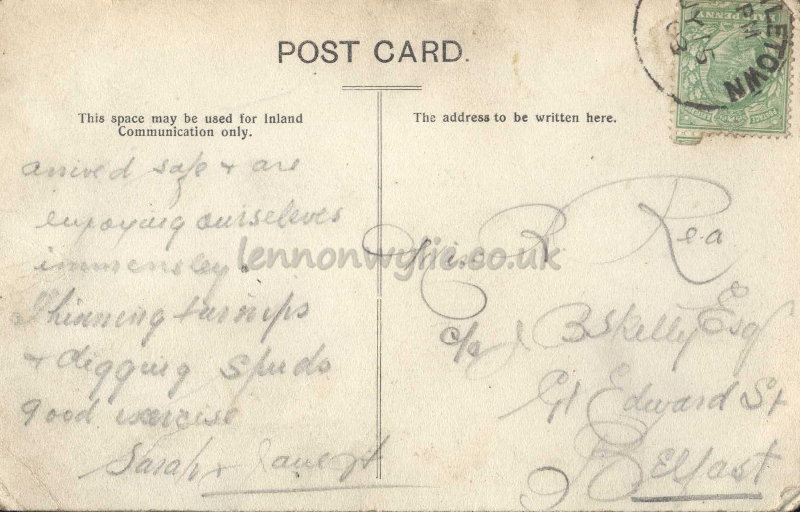 POST CARD.
This space may be used for Inland
Communication only.
arrived safe + are
enjoying ourseleves
immensley.
Thinning turnips
+ digging spuds
good exercise
Sarah + Jane
The address to be written here.
Miss R. Rea
c/o J B Skelly Esq
Gt Edward St
Belfast
LETOWN
PM
Y 15
HALFPENNY
lennonwylie.co.uk